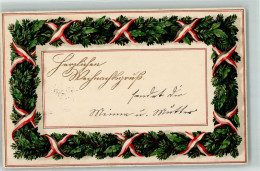 Herzlichen
Weihnachtsgruß.
sendet die
Minna u. Mutter